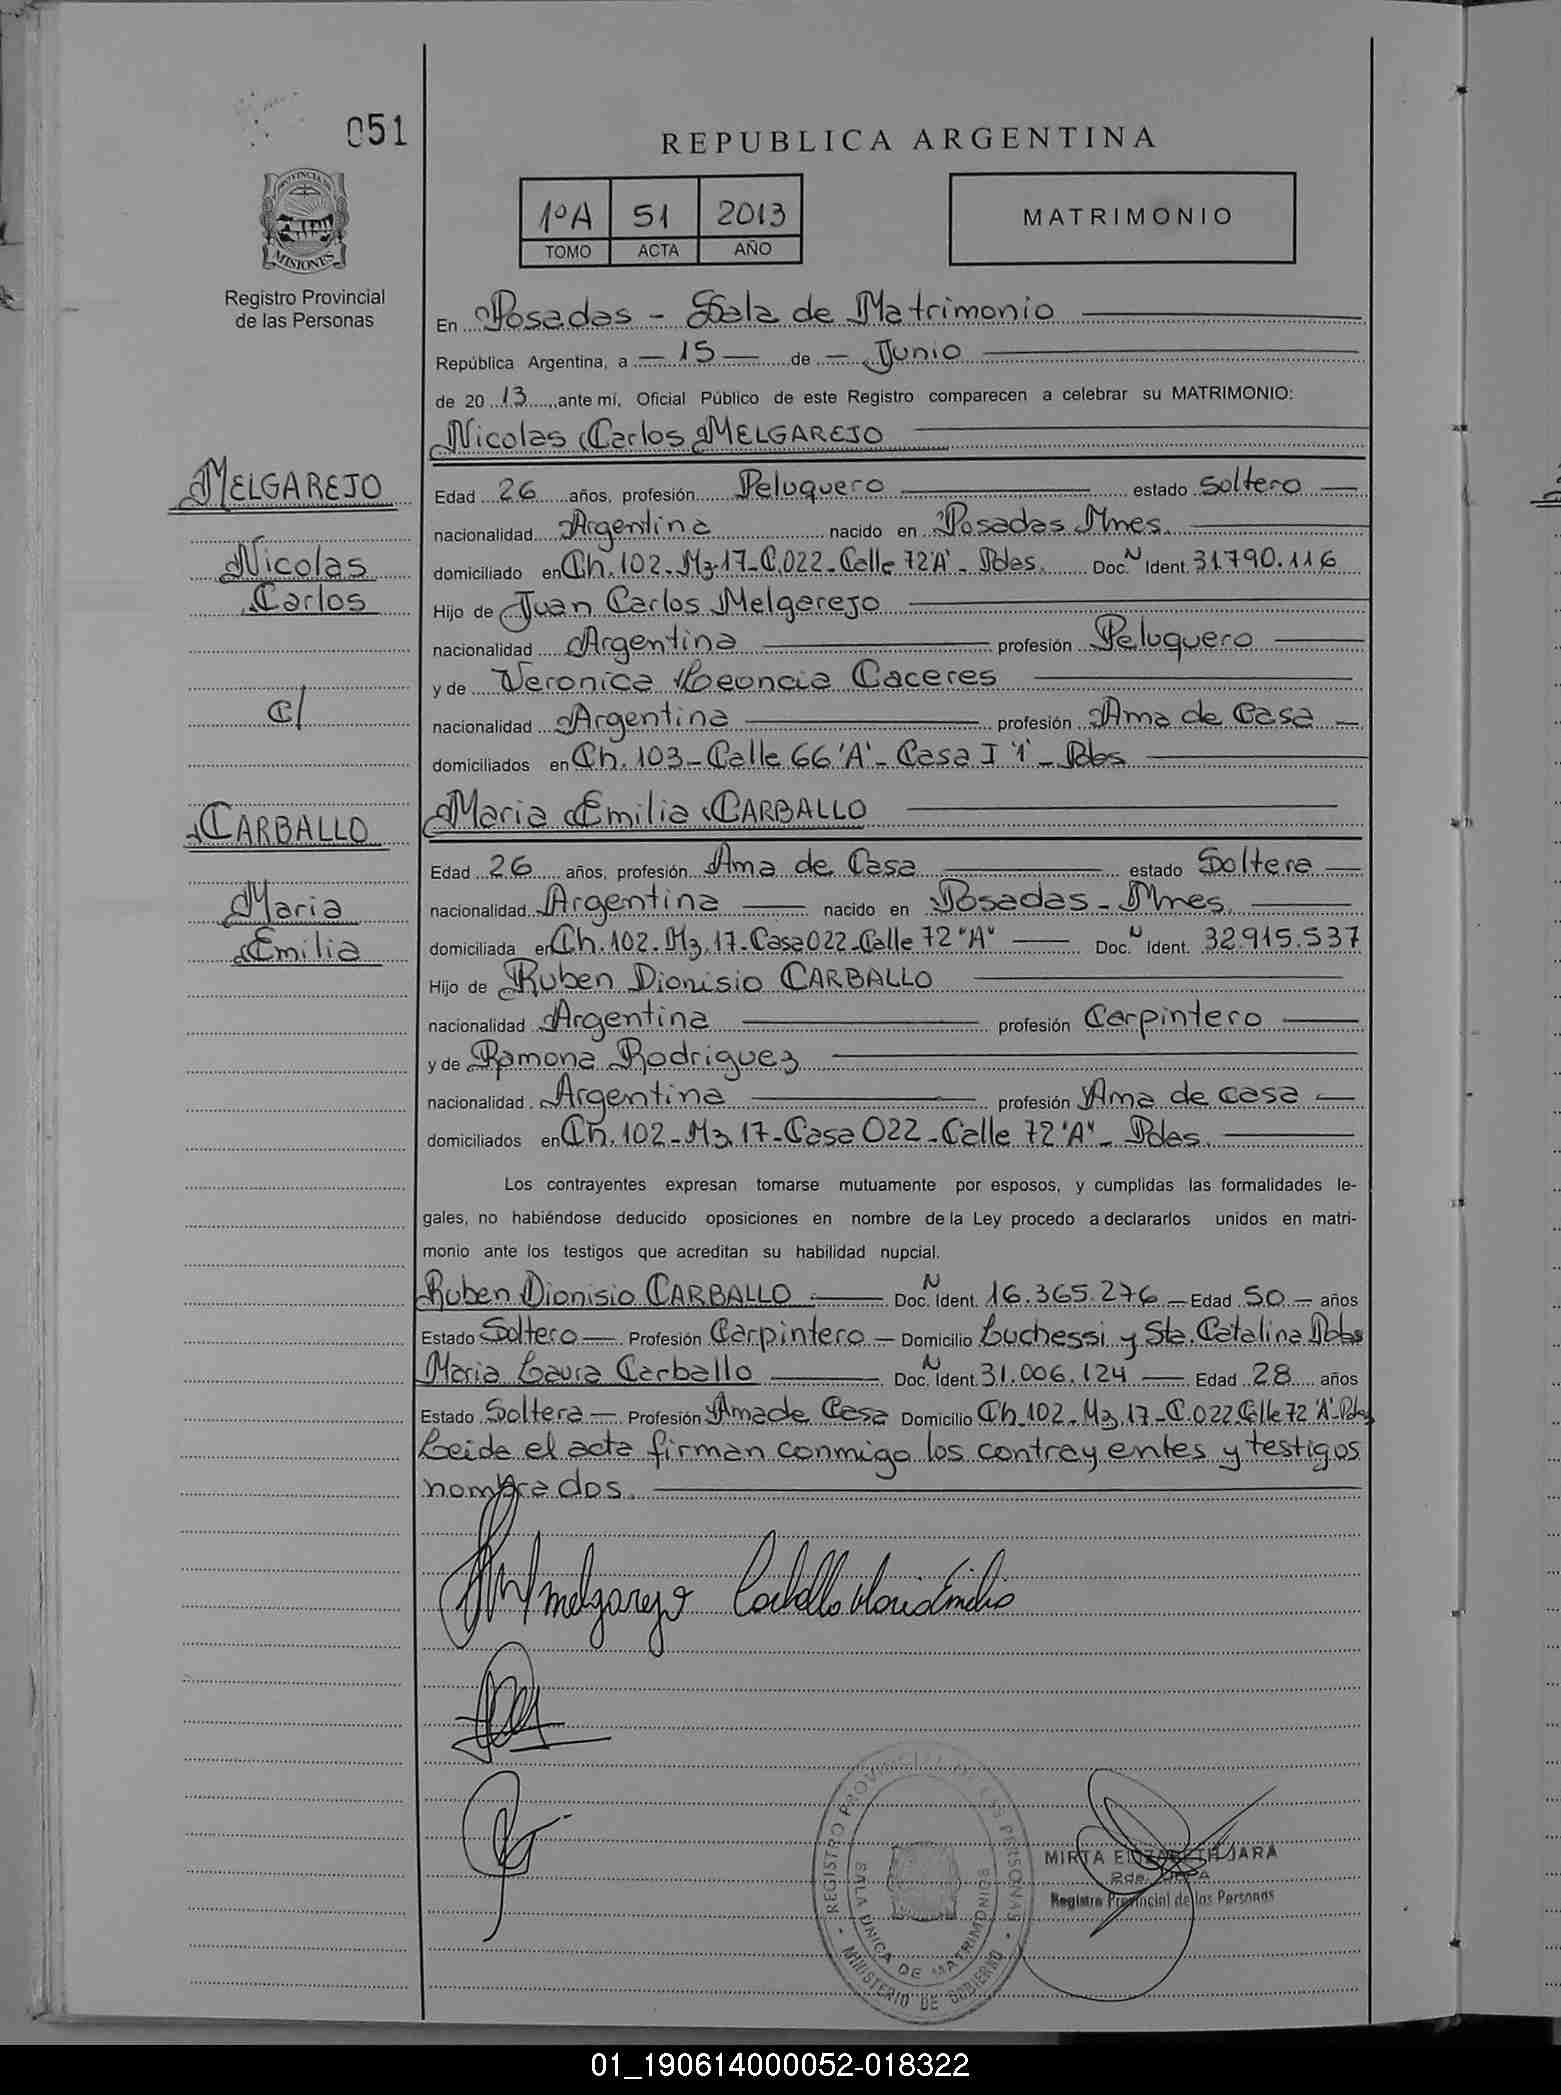 051
REPUBLICA ARGENTINA
1ºA 51 2013
TOMO ACTA AÑO
MATRIMONIO
PROVINCIA DE
MISIONES
Registro Provincial
de las Personas
En Posadas - Sala de Matrimonio
República Argentina, a - 15 - de - Junio
de 20 13 ante mí, Oficial Público de este Registro comparecen a celebrar su MATRIMONIO:
Nicolas Carlos MELGAREJO
MELGAREJO
Nicolas
Carlos
c/
CARBALLO
Maria
Emilia
Edad 26 años, profesión Peluquero estado Soltero
nacionalidad Argentina nacido en Posadas Mnes.
domiciliado en Ch. 102 - Mz 17 - C. 022 - Calle 72 'A' - Pdas. Doc. N Ident. 31.790.116
Hijo de Juan Carlos Melgarejo
nacionalidad Argentina profesión Peluquero
y de Veronica Leoncia Caceres
nacionalidad Argentina profesión Ama de Casa
domiciliados en Ch. 103 - Calle 66 'A' - Casa I '1' - Pdas
Maria Emilia CARBALLO
Edad 26 años, profesión Ama de Casa estado Soltera
nacionalidad Argentina nacido en Posadas - Mnes.
domiciliada en Ch. 102 - Mz. 17 - Casa 022 - Calle 72 "A" Doc. N Ident. 32.915.537
Hijo de Ruben Dionisio CARBALLO
nacionalidad Argentina profesión Carpintero
y de Ramona Rodriguez
nacionalidad Argentina profesión Ama de casa
domiciliados en Ch. 102 - Mz 17 - Casa 022 - Calle 72 'A" - Pdas.
Los contrayentes expresan tomarse mutuamente por esposos, y cumplidas las formalidades le-
gales, no habiéndose deducido oposiciones en nombre de la Ley procedo a declararlos unidos en matri-
monio ante los testigos que acreditan su habilidad nupcial.
Ruben Dionisio CARBALLO Doc. N Ident. 16.365.276 Edad 50 años
Estado Soltero Profesión Carpintero Domicilio Luchessi y Sta. Catalina Pdas
Maria Laura Carballo Doc. N Ident. 31.006.124 Edad 28 años
Estado Soltera Profesión Ama de Casa Domicilio Ch 102 - Mz 17 - C. 022 Calle 72 'A' - Pdas
Leida el acta firman conmigo los contrayentes y testigos
nombrados.
Melgarejo Carballo Maria Emilia
REGISTRO PROVINCIAL DE LAS PERSONAS
SALA UNICA DE MATRIMONIOS
MINISTERIO DE GOBIERNO
MIRTA ELIZABETH JARA
Registro Provincial de las Personas
01_190614000052-018322